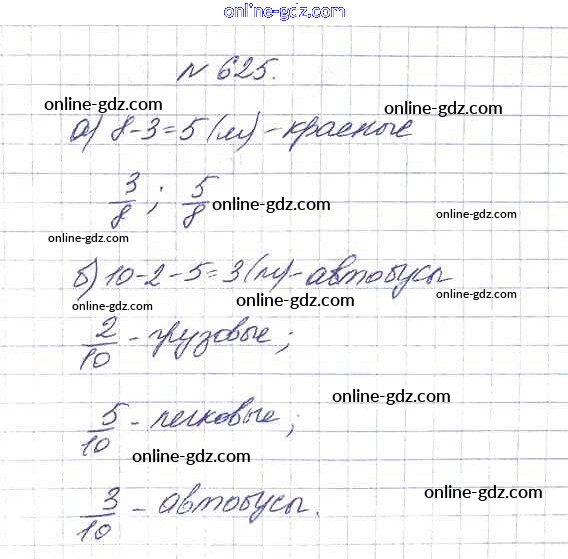 online-gdz.com
№ 625.
online-gdz.com online-gdz.com
а) 8-3=5 (м) - красные
online-gdz.com
3/8 ; 5/8 online-gdz.com
online-gdz.com
online-gdz.com
б) 10-2-5=3 (м) - автобусы
online-gdz.com online-gdz.com online-gdz.com
2/10 - грузовые;
online-gdz.com
5/10 - легковые;
online-gdz.com
online-gdz.com
3/10 - автобусы.
online-gdz.com